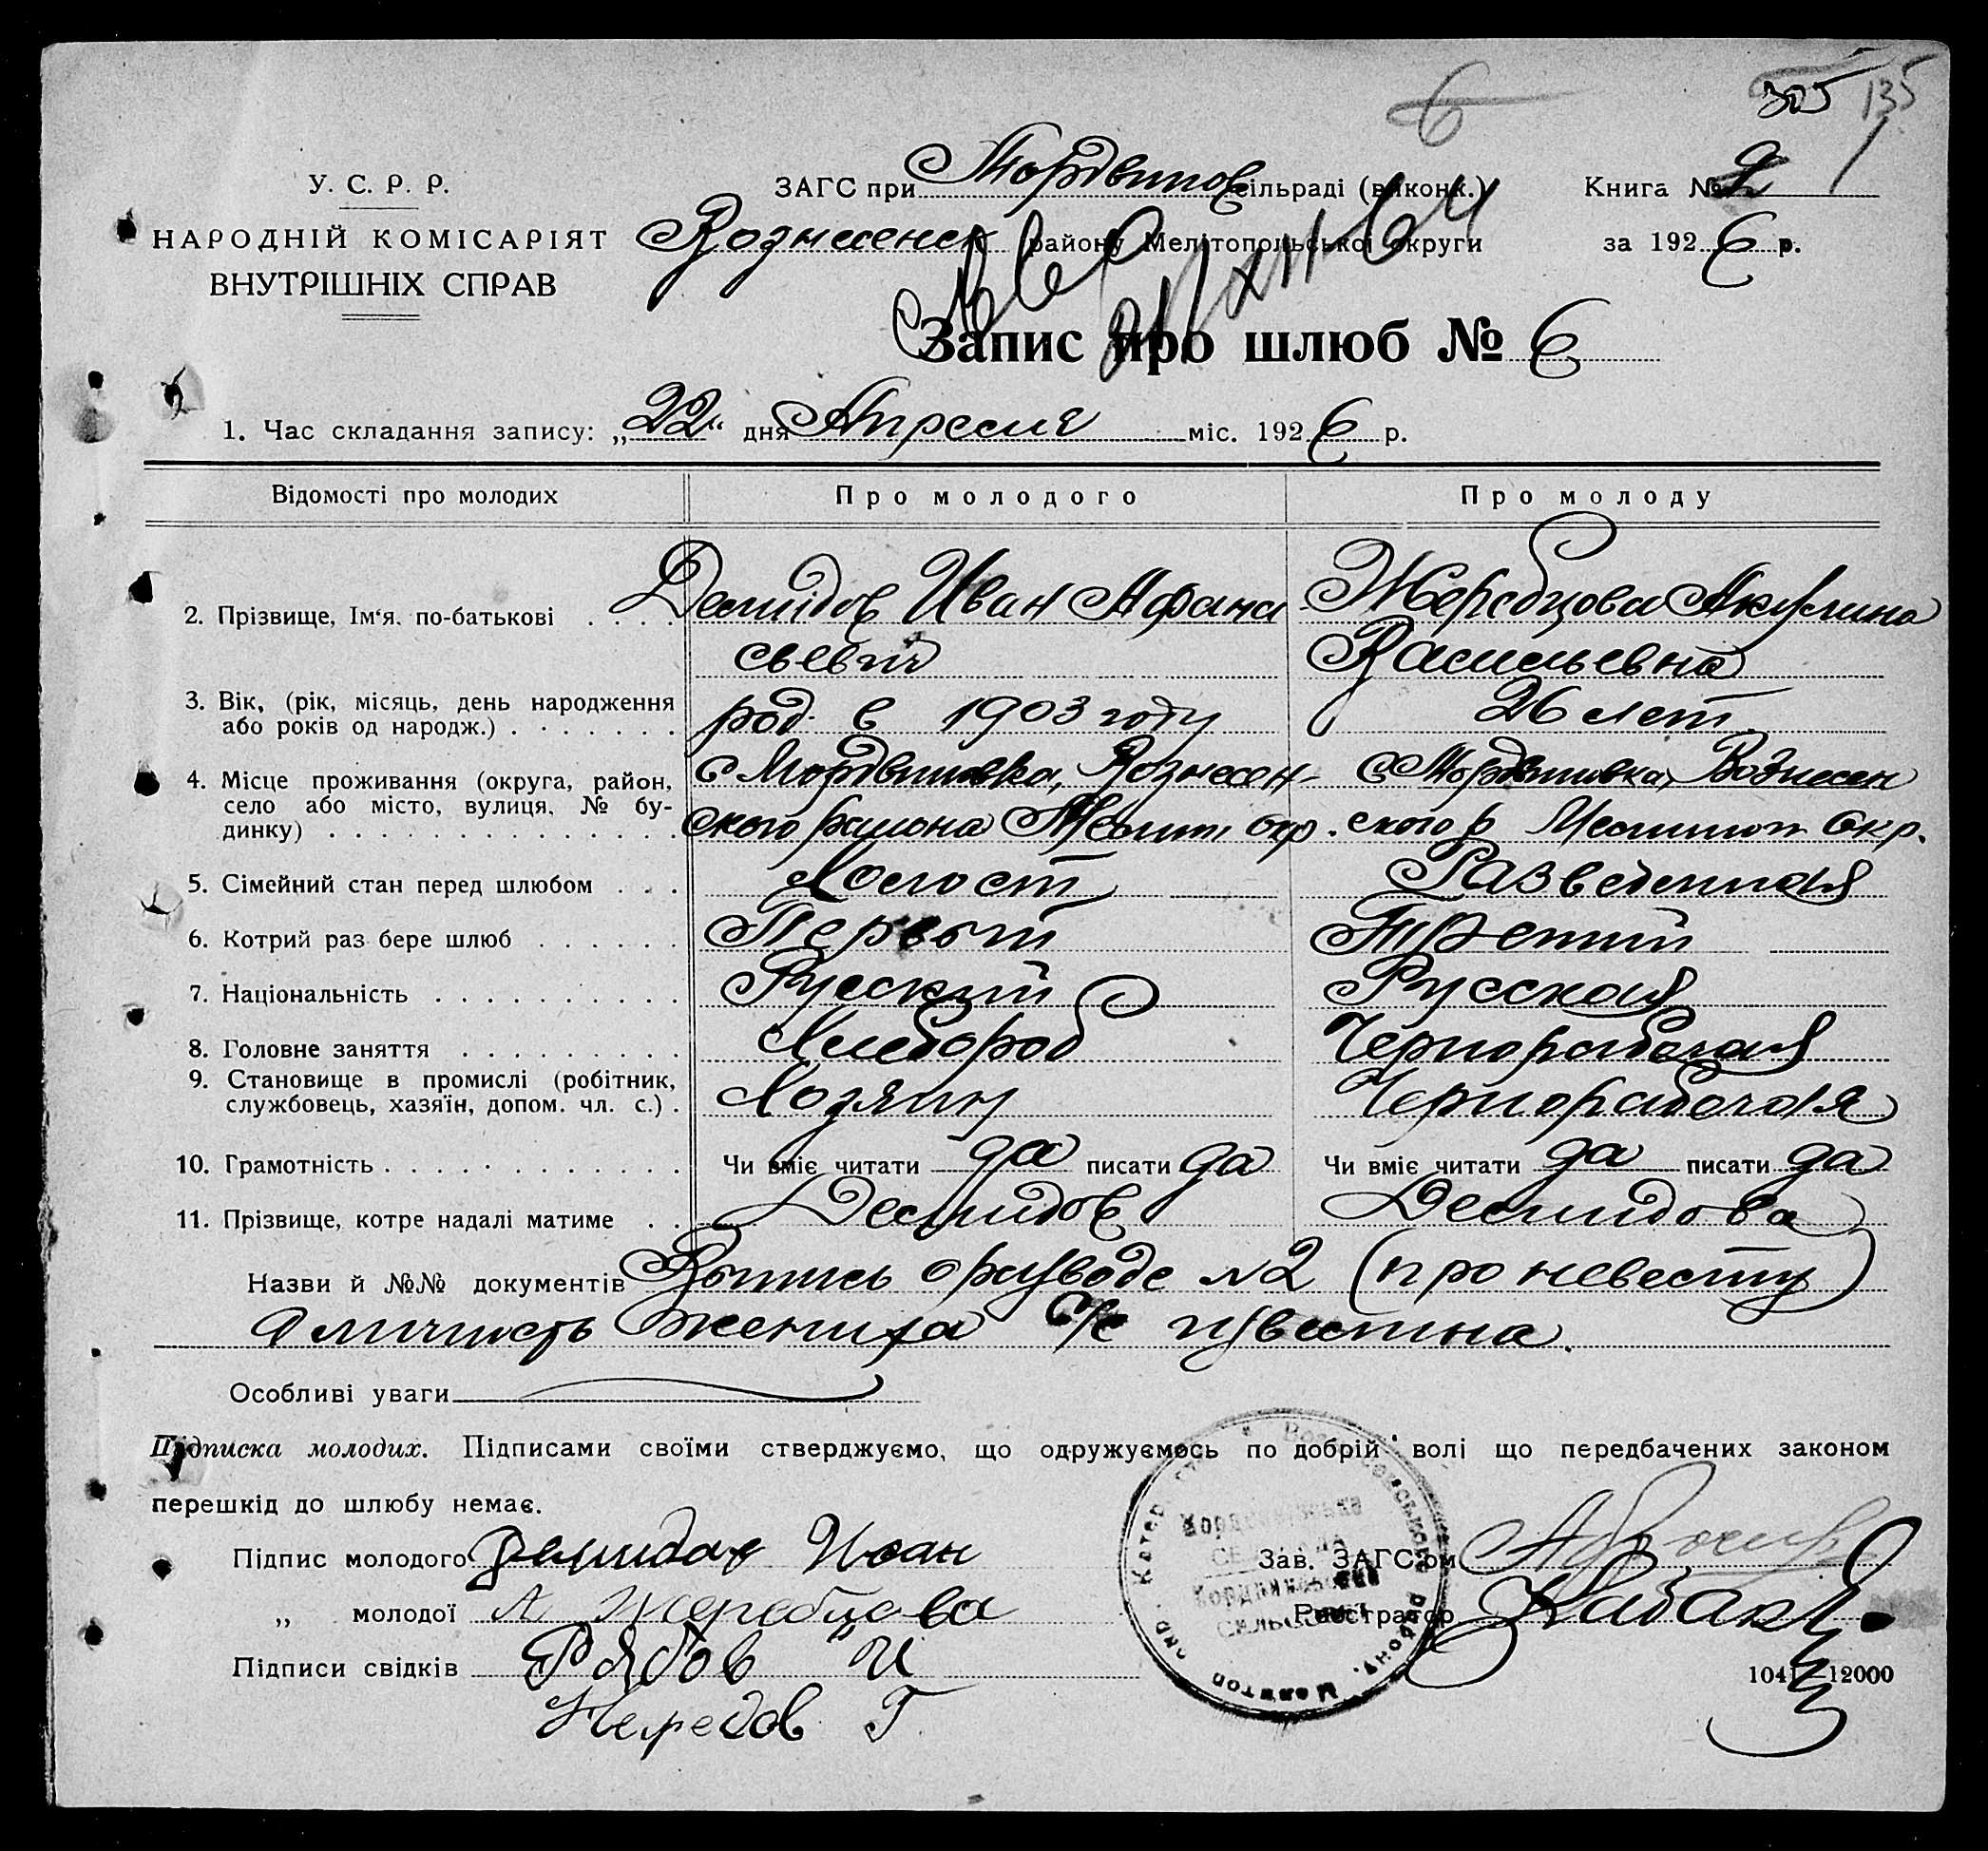 6
305 135
У. С. Р. Р.
НАРОДНІЙ КОМІСАРІЯТ
ВНУТРІШНІХ СПРАВ
ЗАГС при Мордвинов сільраді (виконк.) Книга № 2
Вознесенск району Мелітопольської округи за 1926 р.
Запис про шлюб № 6
1. Час складання запису: „22“ дня Апреля міс. 1926 р.
Відомості про молодих Про молодого Про молоду
2. Прізвище, Ім‘я. по-батькові Демидов Иван Афана Жеребцова Акулина
сьевич Васильевна
3. Вік, (рік, місяць, день народження
або років од народж.) род. в 1903 году 26 лет
4. Місце проживання (округа, район, с Мордвиновка, Вознесен- с Мордвиновка, Вознесен
село або місто, вулиця, № бу-
динку) ского района Мелит окр. ского р Мелитоп Окр.
5. Сімейний стан перед шлюбом Холост Разведенная
6. Котрий раз бере шлюб Первый Третий
7. Національність Русский Русская
8. Головне заняття Хлебороб Чернорабочая
9. Становище в промислі (робітник,
службовець, хазяїн, допом. чл. с.) Хозяин Чернорабочая
10. Грамотність Чи вміє читати да писати да Чи вміє читати да писати да
11. Прізвище, котре надалі матиме Демидов Демидова
Назви й №№ документів Выпись о разводе №2 (про невесту)
Личность жениха с/с извесна.
Особливі уваги
Підписка молодих. Підписами своїми стверджуємо, що одружуємось по добрій волі що передбачених законом
перешкід до шлюбу немає.
Підпис молодого Демидов Иван Зав. ЗАГС‘ом
„ молодої А Жеребцова Реєстратор
Підписи свідків Рябов И 1041—12000